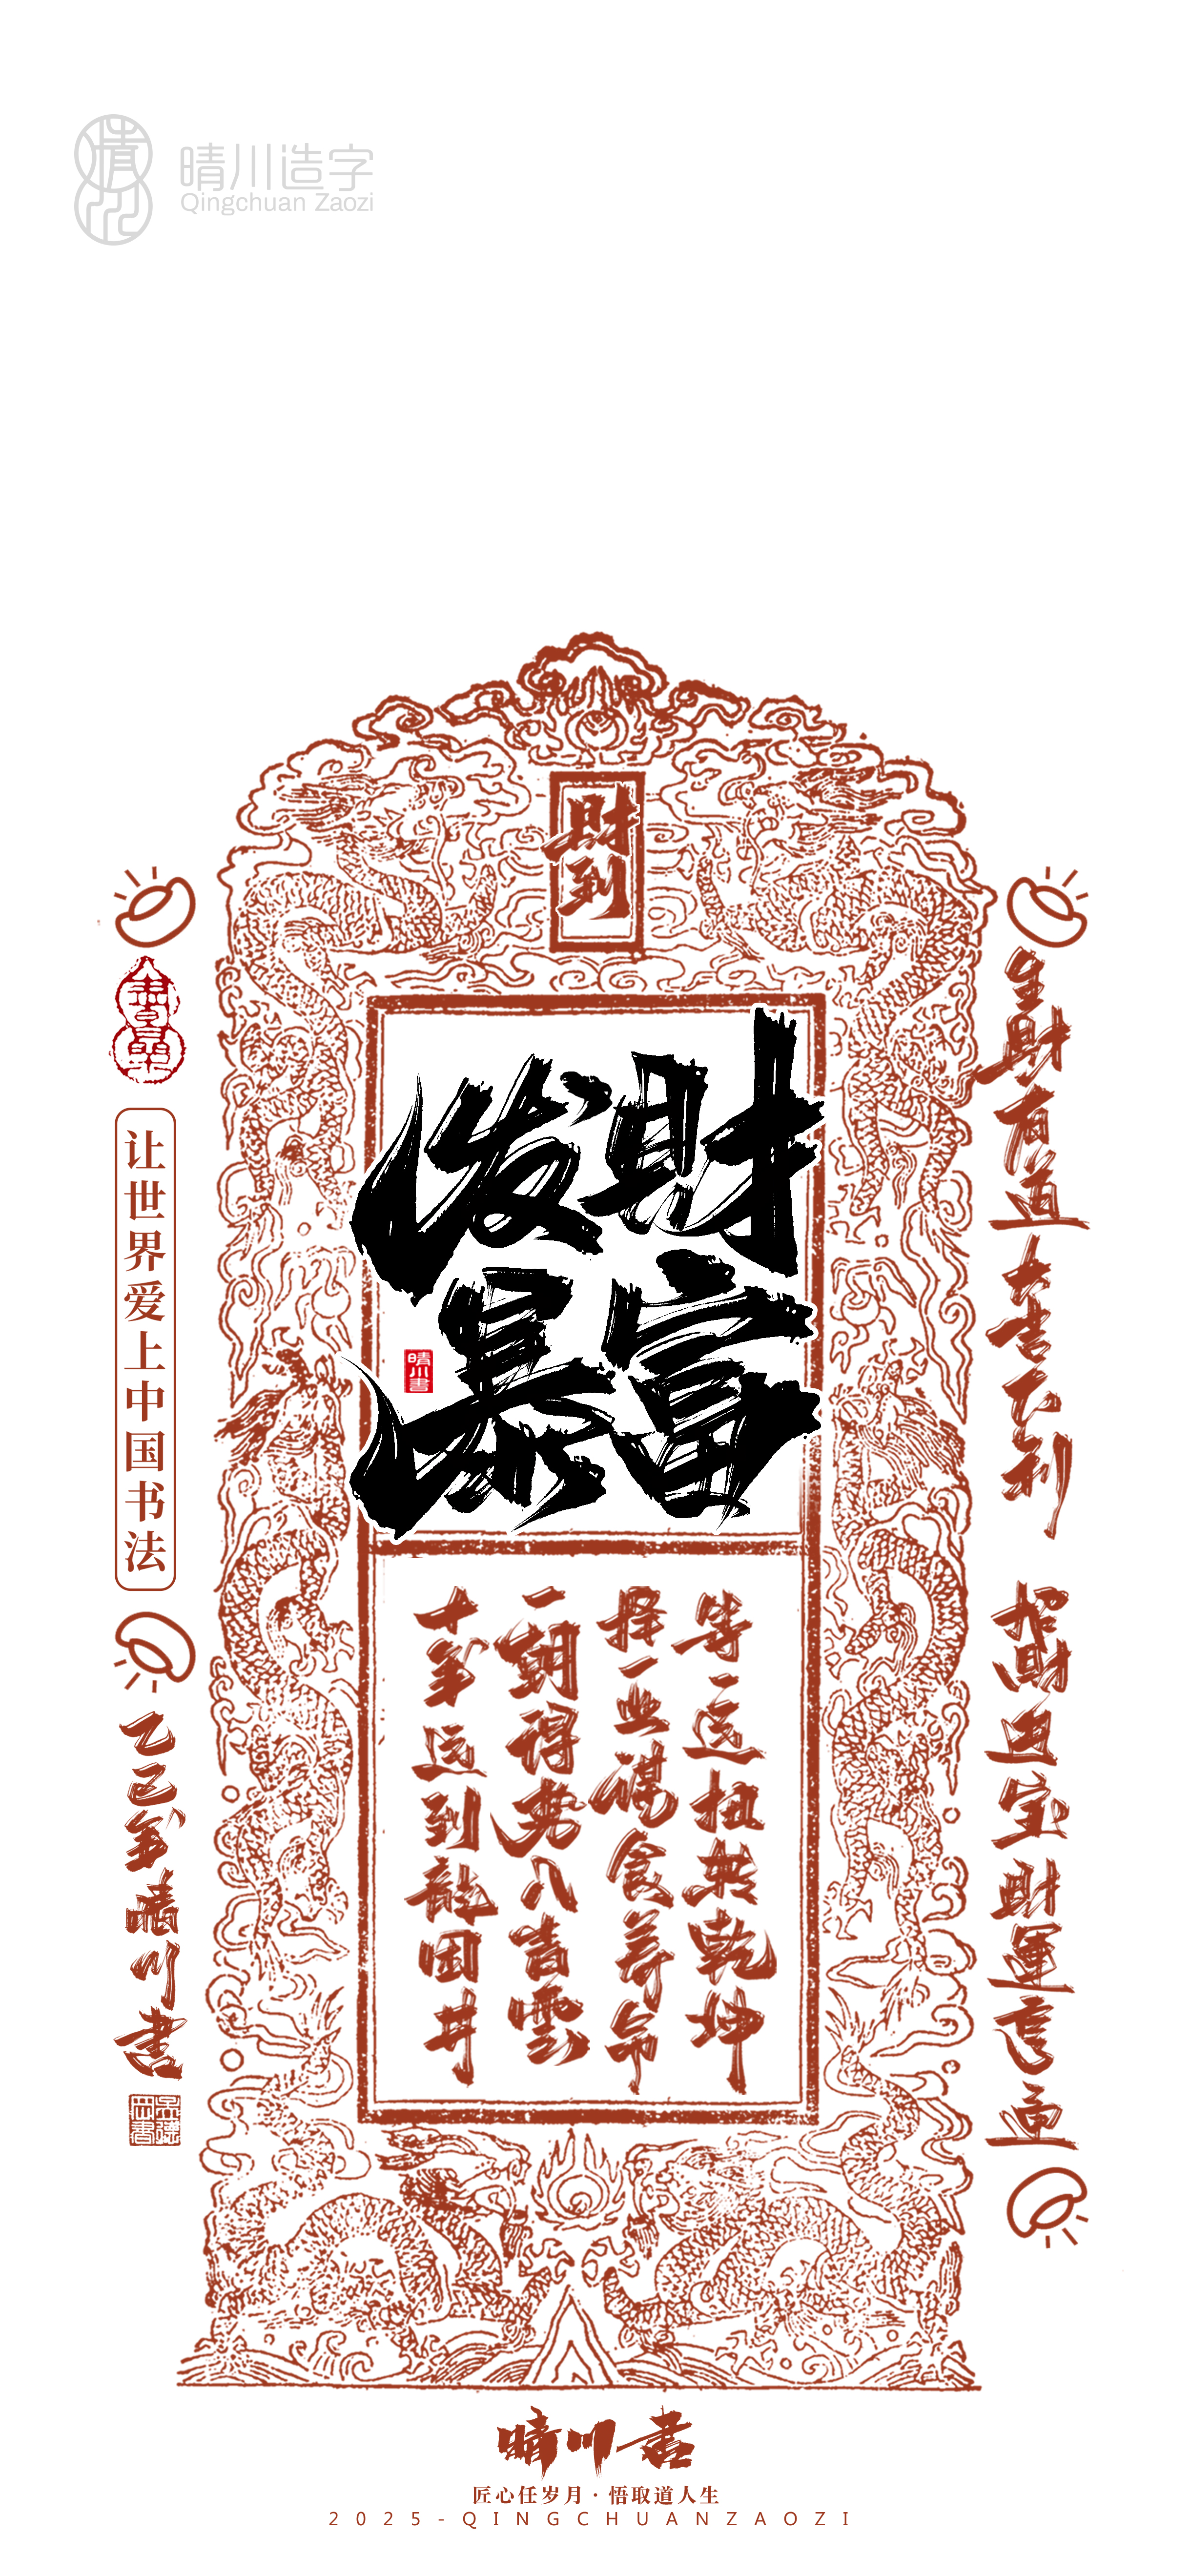 晴川造字
Qingchuan Zaozi
財到
发財
暴富
晴川書
等一运扭转乾坤
择一业谋食养命
一朝得势入青雲
十年运到龍困井
生財有道大吉大利
招財进宝財運亨通
让世界爱上中国书法
乙巳年晴川書
晴川书
匠心任岁月·悟取道人生
2025-QINGCHUANZAOZI